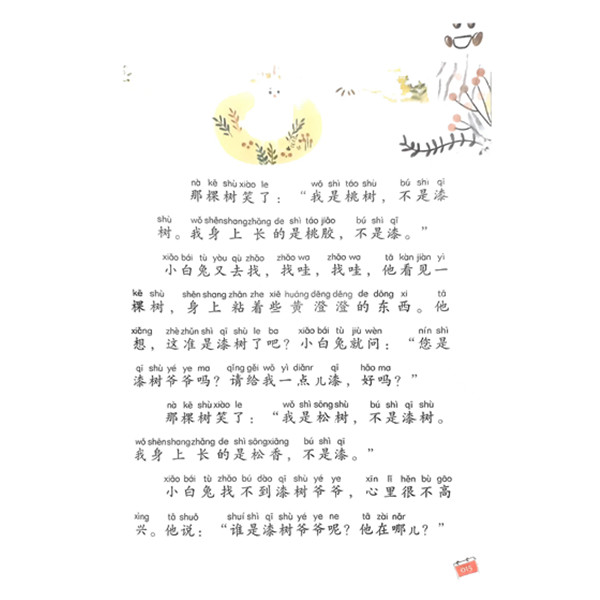 nà kē shù xiào le wǒ shì táo shù bú shì qī
那棵树笑了：“我是桃树，不是漆
shù wǒ shēnshang zhǎng de shì táo jiāo bú shì qī
树。我身上长的是桃胶，不是漆。”
xiǎo bái tù yòu qù zhǎo zhǎo wa zhǎo wa tā kàn jiàn yì
小白兔又去找，找哇，找哇，他看见一
kē shù shēn shang zhān zhe xiē huáng dēng dēng de dōng xi tā
棵树，身上粘着些黄澄澄的东西。他
xiǎng zhè zhǔn shì qī shù le ba xiǎo bái tù jiù wèn nín shì
想，这准是漆树了吧？小白兔就问：“您是
qī shù yé ye ma qǐng gěi wǒ yì diǎnr qī hǎo ma
漆树爷爷吗？请给我一点儿漆，好吗？”
nà kē shù xiào le wǒ shì sōng shù bú shì qī shù
那棵树笑了：“我是松树，不是漆树。
wǒ shēn shang zhǎng de shì sōng xiāng bú shì qī
我身上长的是松香，不是漆。”
xiǎo bái tù zhǎo bú dào qī shù yé ye xīn lǐ hěn bù gāo
小白兔找不到漆树爷爷，心里很不高
xìng tā shuō shuí shì qī shù yé ye ne tā zài nǎr
兴。他说：“谁是漆树爷爷呢？他在哪儿？”
015